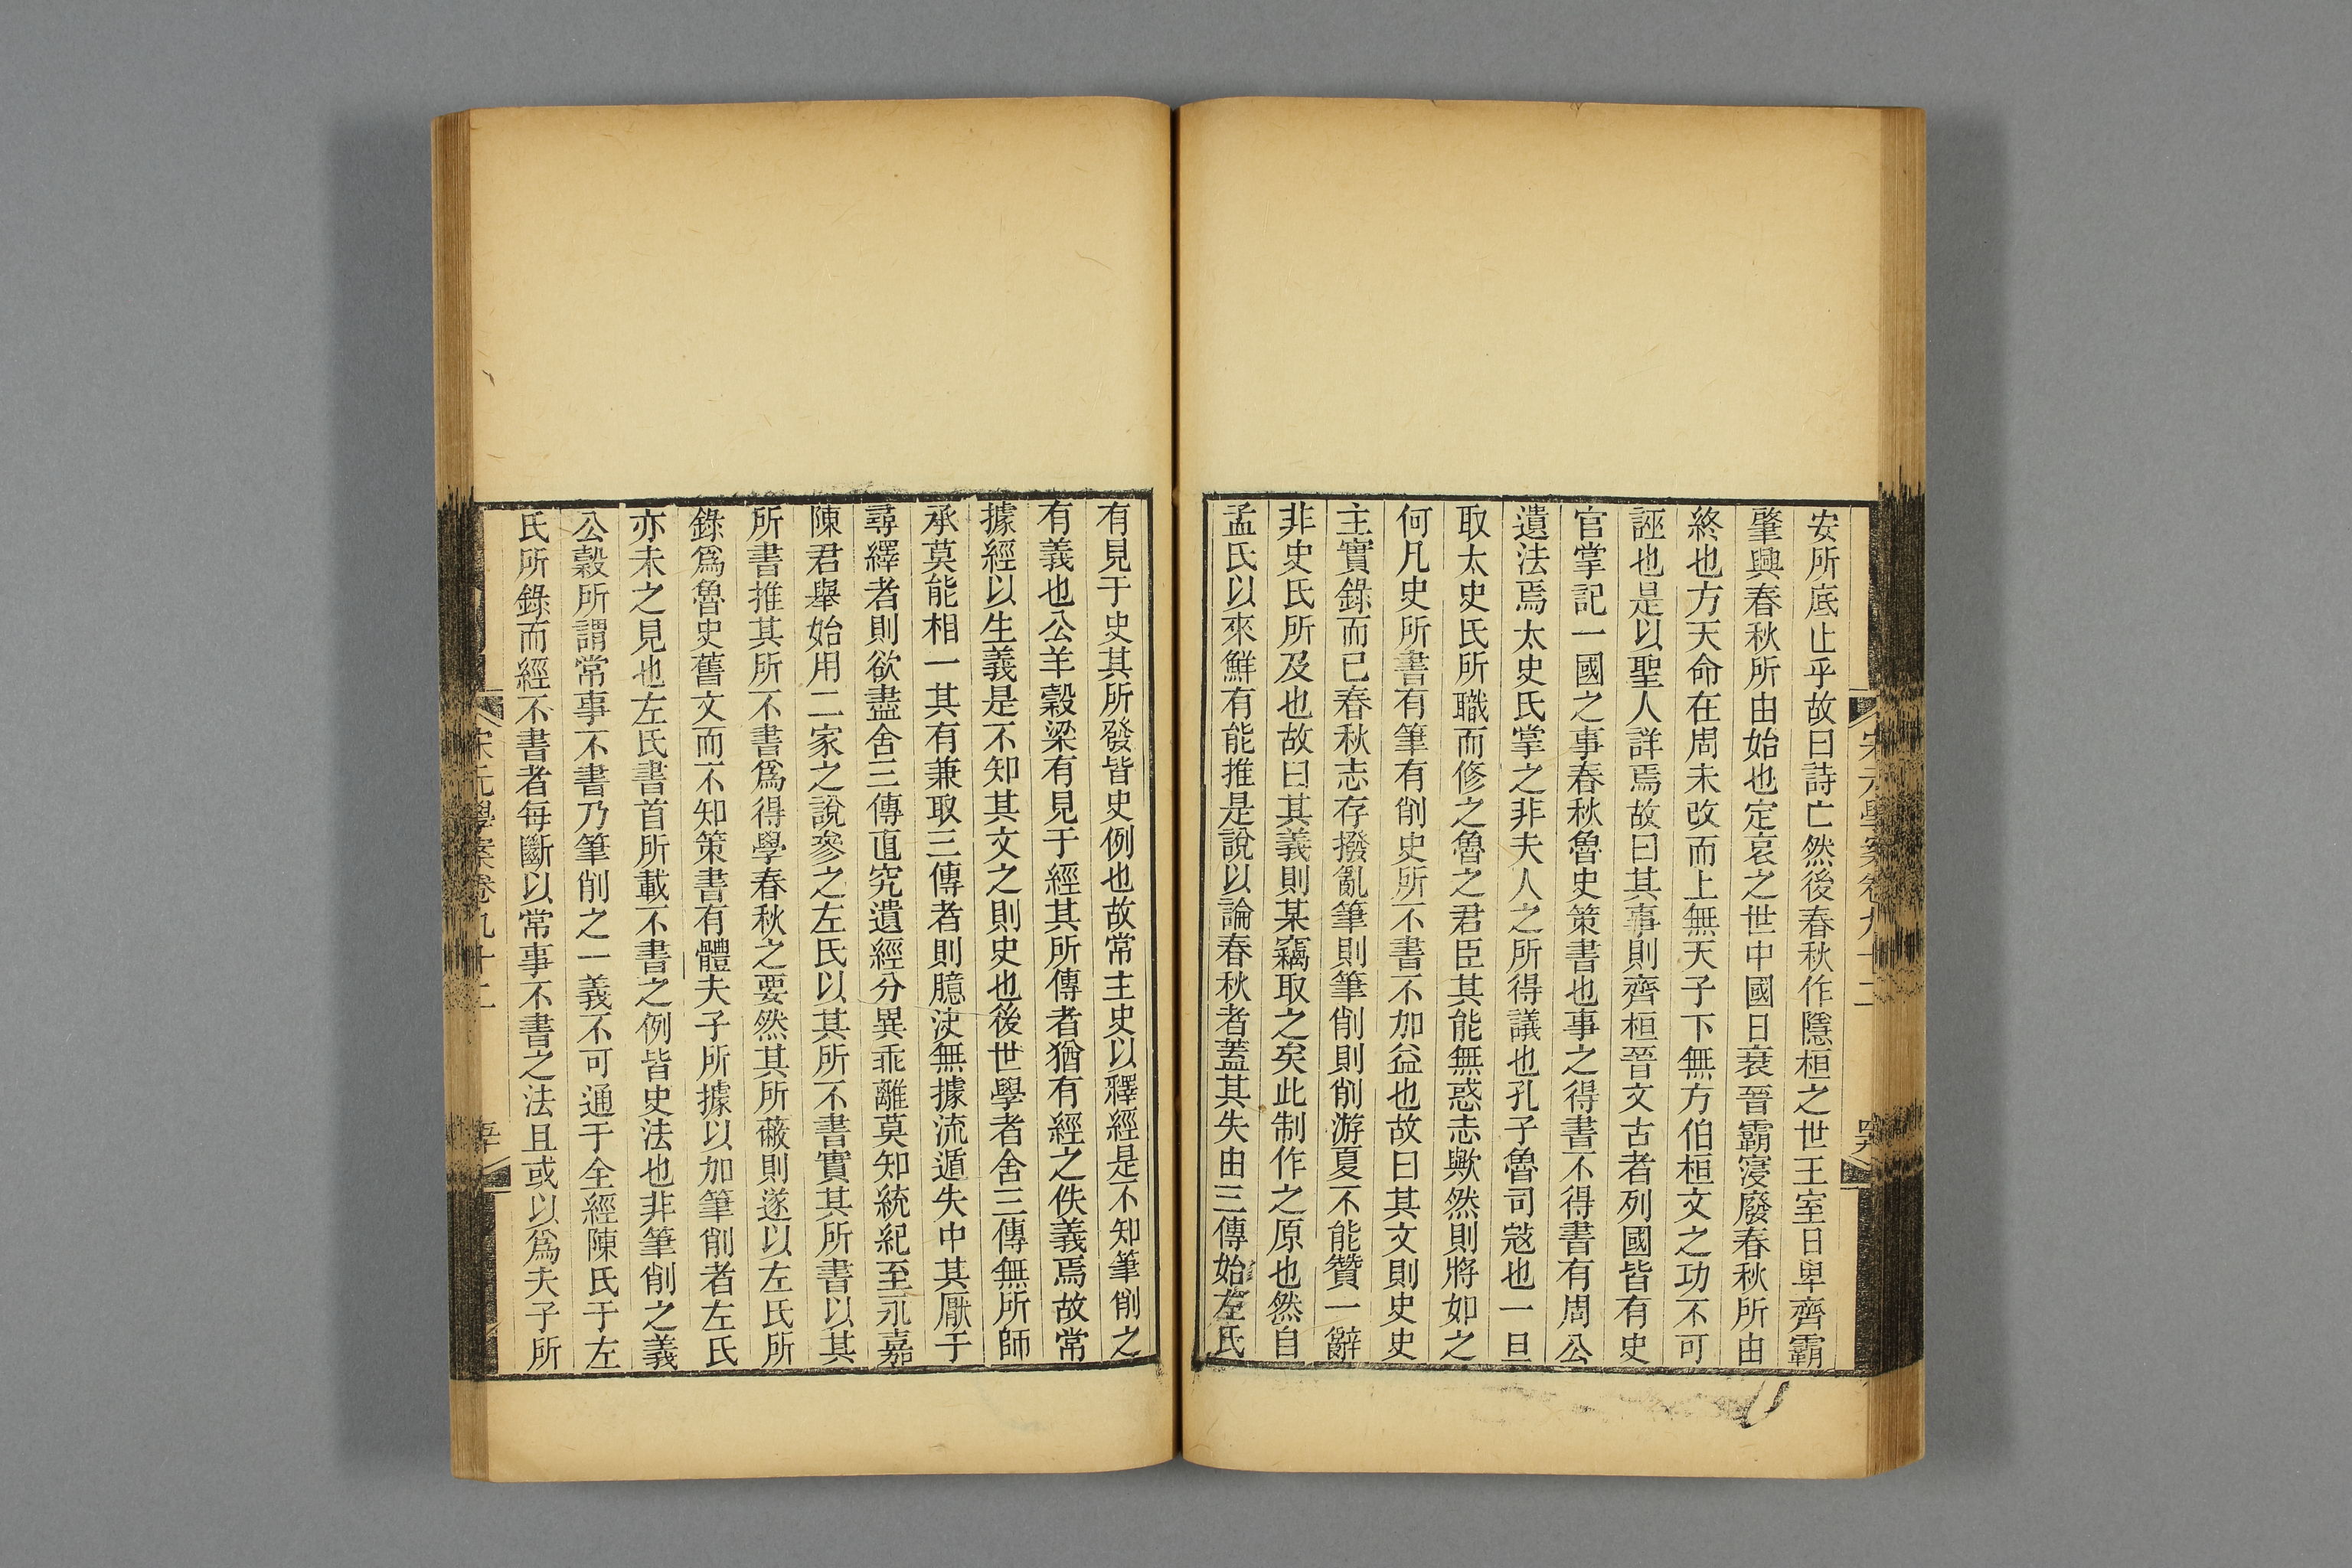 宋元學案卷九十二
安所底止乎故曰詩亡然後春秋作隱桓之世王室日卑齊霸
肇興春秋所由始也定哀之世中國日衰晉霸寖廢春秋所由
終也方天命在周未改而上無天子下無方伯桓文之功不可
誣也是以聖人詳焉故曰其事則齊桓晉文古者列國皆有史
官掌記一國之事春秋魯史策書也事之得書不得書有周公
遺法焉太史氏掌之非夫人之所得議也孔子魯司寇也一旦
取太史氏所職而修之魯之君臣其能無惑志歟然則將如之
何凡史所書有筆有削史所不書不加益也故曰其文則史史
主實錄而已春秋志存撥亂筆則筆削則削游夏不能贊一辭
非史氏所及也故曰其義則某竊取之矣此制作之原也然自
孟氏以來鮮有能推是說以論春秋者蓋其失由三傳始左氏
有見于史其所發皆史例也故常主史以釋經是不知筆削之
有義也公羊穀梁有見于經其所傳者猶有經之佚義焉故常
據經以生義是不知其文之則史也後世學者舍三傳無所師
承莫能相一其有兼取三傳者則臆決無據流遁失中其厭于
尋繹者則欲盡舍三傳直究遺經分異乖離莫知統紀至永嘉
陳君舉始用二家之說參之左氏以其所不書實其所書以其
所書推其所不書爲得學春秋之要然其所蔽則遂以左氏所
錄爲魯史舊文而不知策書有體夫子所據以加筆削者左氏
亦未之見也左氏書首所載不書之例皆史法也非筆削之義
公穀所謂常事不書乃筆削之一義不可通于全經陳氏于左
氏所錄而經不書者每斷以常事不書之法且或以爲夫子所
宋元學案卷九十二